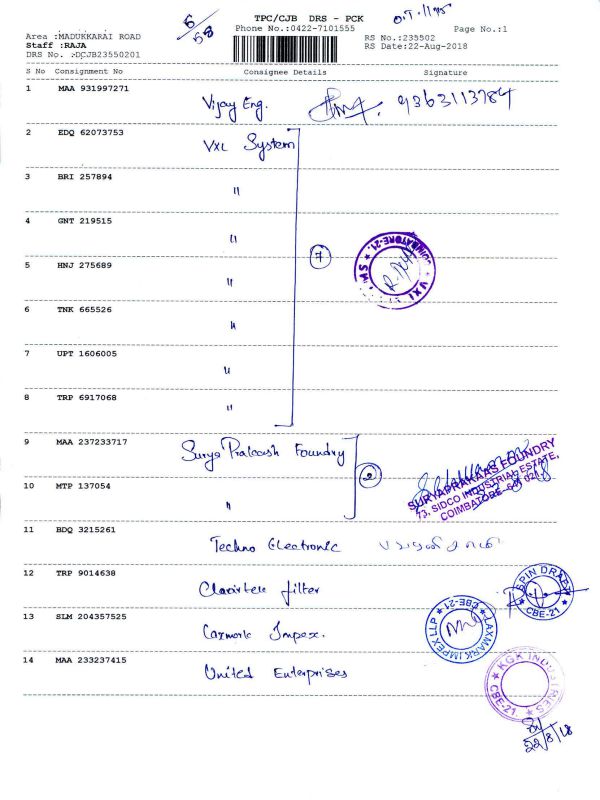 5/58
TPC/CJB DRS - PCK
Phone No.:0422-7101555
Page No.:1
Area :MADUKKARAI ROAD
Staff :RAJA
DRS No. :DCJB23550201
RS No.:235502
RS Date:22-Aug-2018
S No Consignment No Consignee Details Signature
1 MAA 931997271 Vijay Eng. 9363113784
2 EDQ 62073753 VXL System
3 BRI 257894 "
4 GNT 219515 "
7
5 HNJ 275689 "
6 TNK 665526 "
7 UPT 1606005 "
8 TRP 6917068 "
9 MAA 237233717 Surya Prakash Foundry
SURYAPRAKAAS FOUNDRY
73, SIDCO INDUSTRIAL ESTATE,
COIMBATORE-641 021.
10 MTP 137054 "
2
11 BDQ 3215261 Techno Electronic
12 TRP 9014638 filter
SPIN DRAFT
CBE-21
13 SLM 204357525 Impex.
LAXMARK IMPEX LLP
CBE-21
14 MAA 233237415 United Enterprises
KGK INDUSTRIES
CBE-21
22/8/18